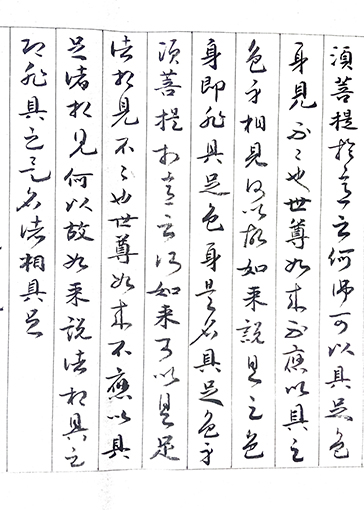 須菩提於意云何佛可以具足色
身見不不也世尊如來不應以具足
色身相見何以故如來說具足色
身即非具足色身是名具足色身
須菩提於意云何如來可以具足
諸相見不不也世尊如來不應以具
足諸相見何以故如來說諸相具足
即非具足是名諸相具足